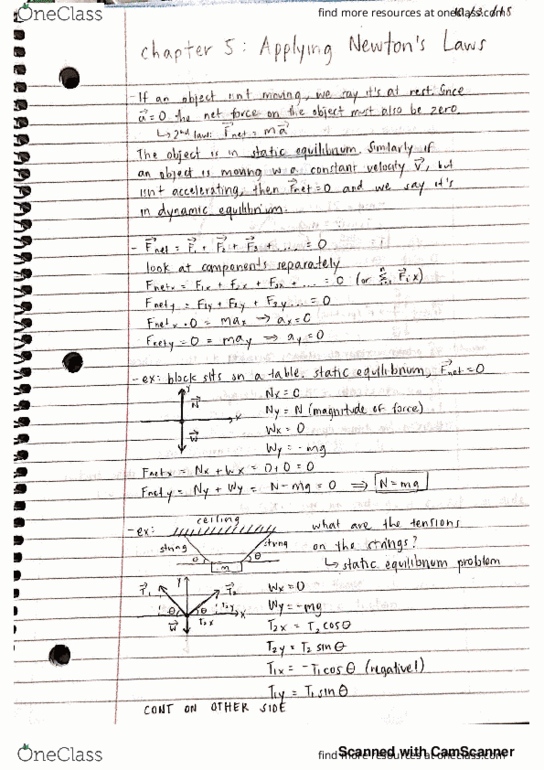 OneClass
find more resources at oneclass.com
chapter 5: Applying Newton's Laws
- If an object isn't moving, we say it's at rest. Since
a⃗=0 the net force on the object must also be zero.
↳ 2nd law: F⃗net = ma⃗
The object is in static equilibrium. Similarly if
an object is moving w a constant velocity V⃗, but
isn't accelerating, then F⃗net=0 and we say it's
in dynamic equilibrium.
- F⃗net = F⃗1 + F⃗2 + F⃗3 + .... = 0
look at components separately
Fnetx = F1x + F2x + F3x + ... = 0 (or Σ F⃗ix)
Fnety = F1y + F2y + F3y + .... = 0
Fnetx = 0 = max → ax=0
Fnety = 0 = may ⇒ ay=0
- ex: block sits on a table. static equilibrium, F⃗net=0
Y
N⃗
x
W⃗
Nx = 0
Ny = N (magnitude of force)
Wx = 0
Wy = -mg
Fnetx = Nx + Wx = 0+0 = 0
Fnety = Ny + Wy = N-mg = 0 ⇒ N=mg
- ex:
ceiling
string
string
θ
θ
m
what are the tensions
on the strings?
↳ static equilibrium problem
T⃗1
Y
T⃗2
θ
θ
T2y
x
W⃗
T2x
Wx=0
Wy=-mg
T2x = T2 cosθ
T2y = T2 sinθ
T1x = -T1 cosθ (negative!)
T1y = T1 sinθ
CONT ON OTHER SIDE
OneClass
find more resources at oneclass.com
Scanned with CamScanner